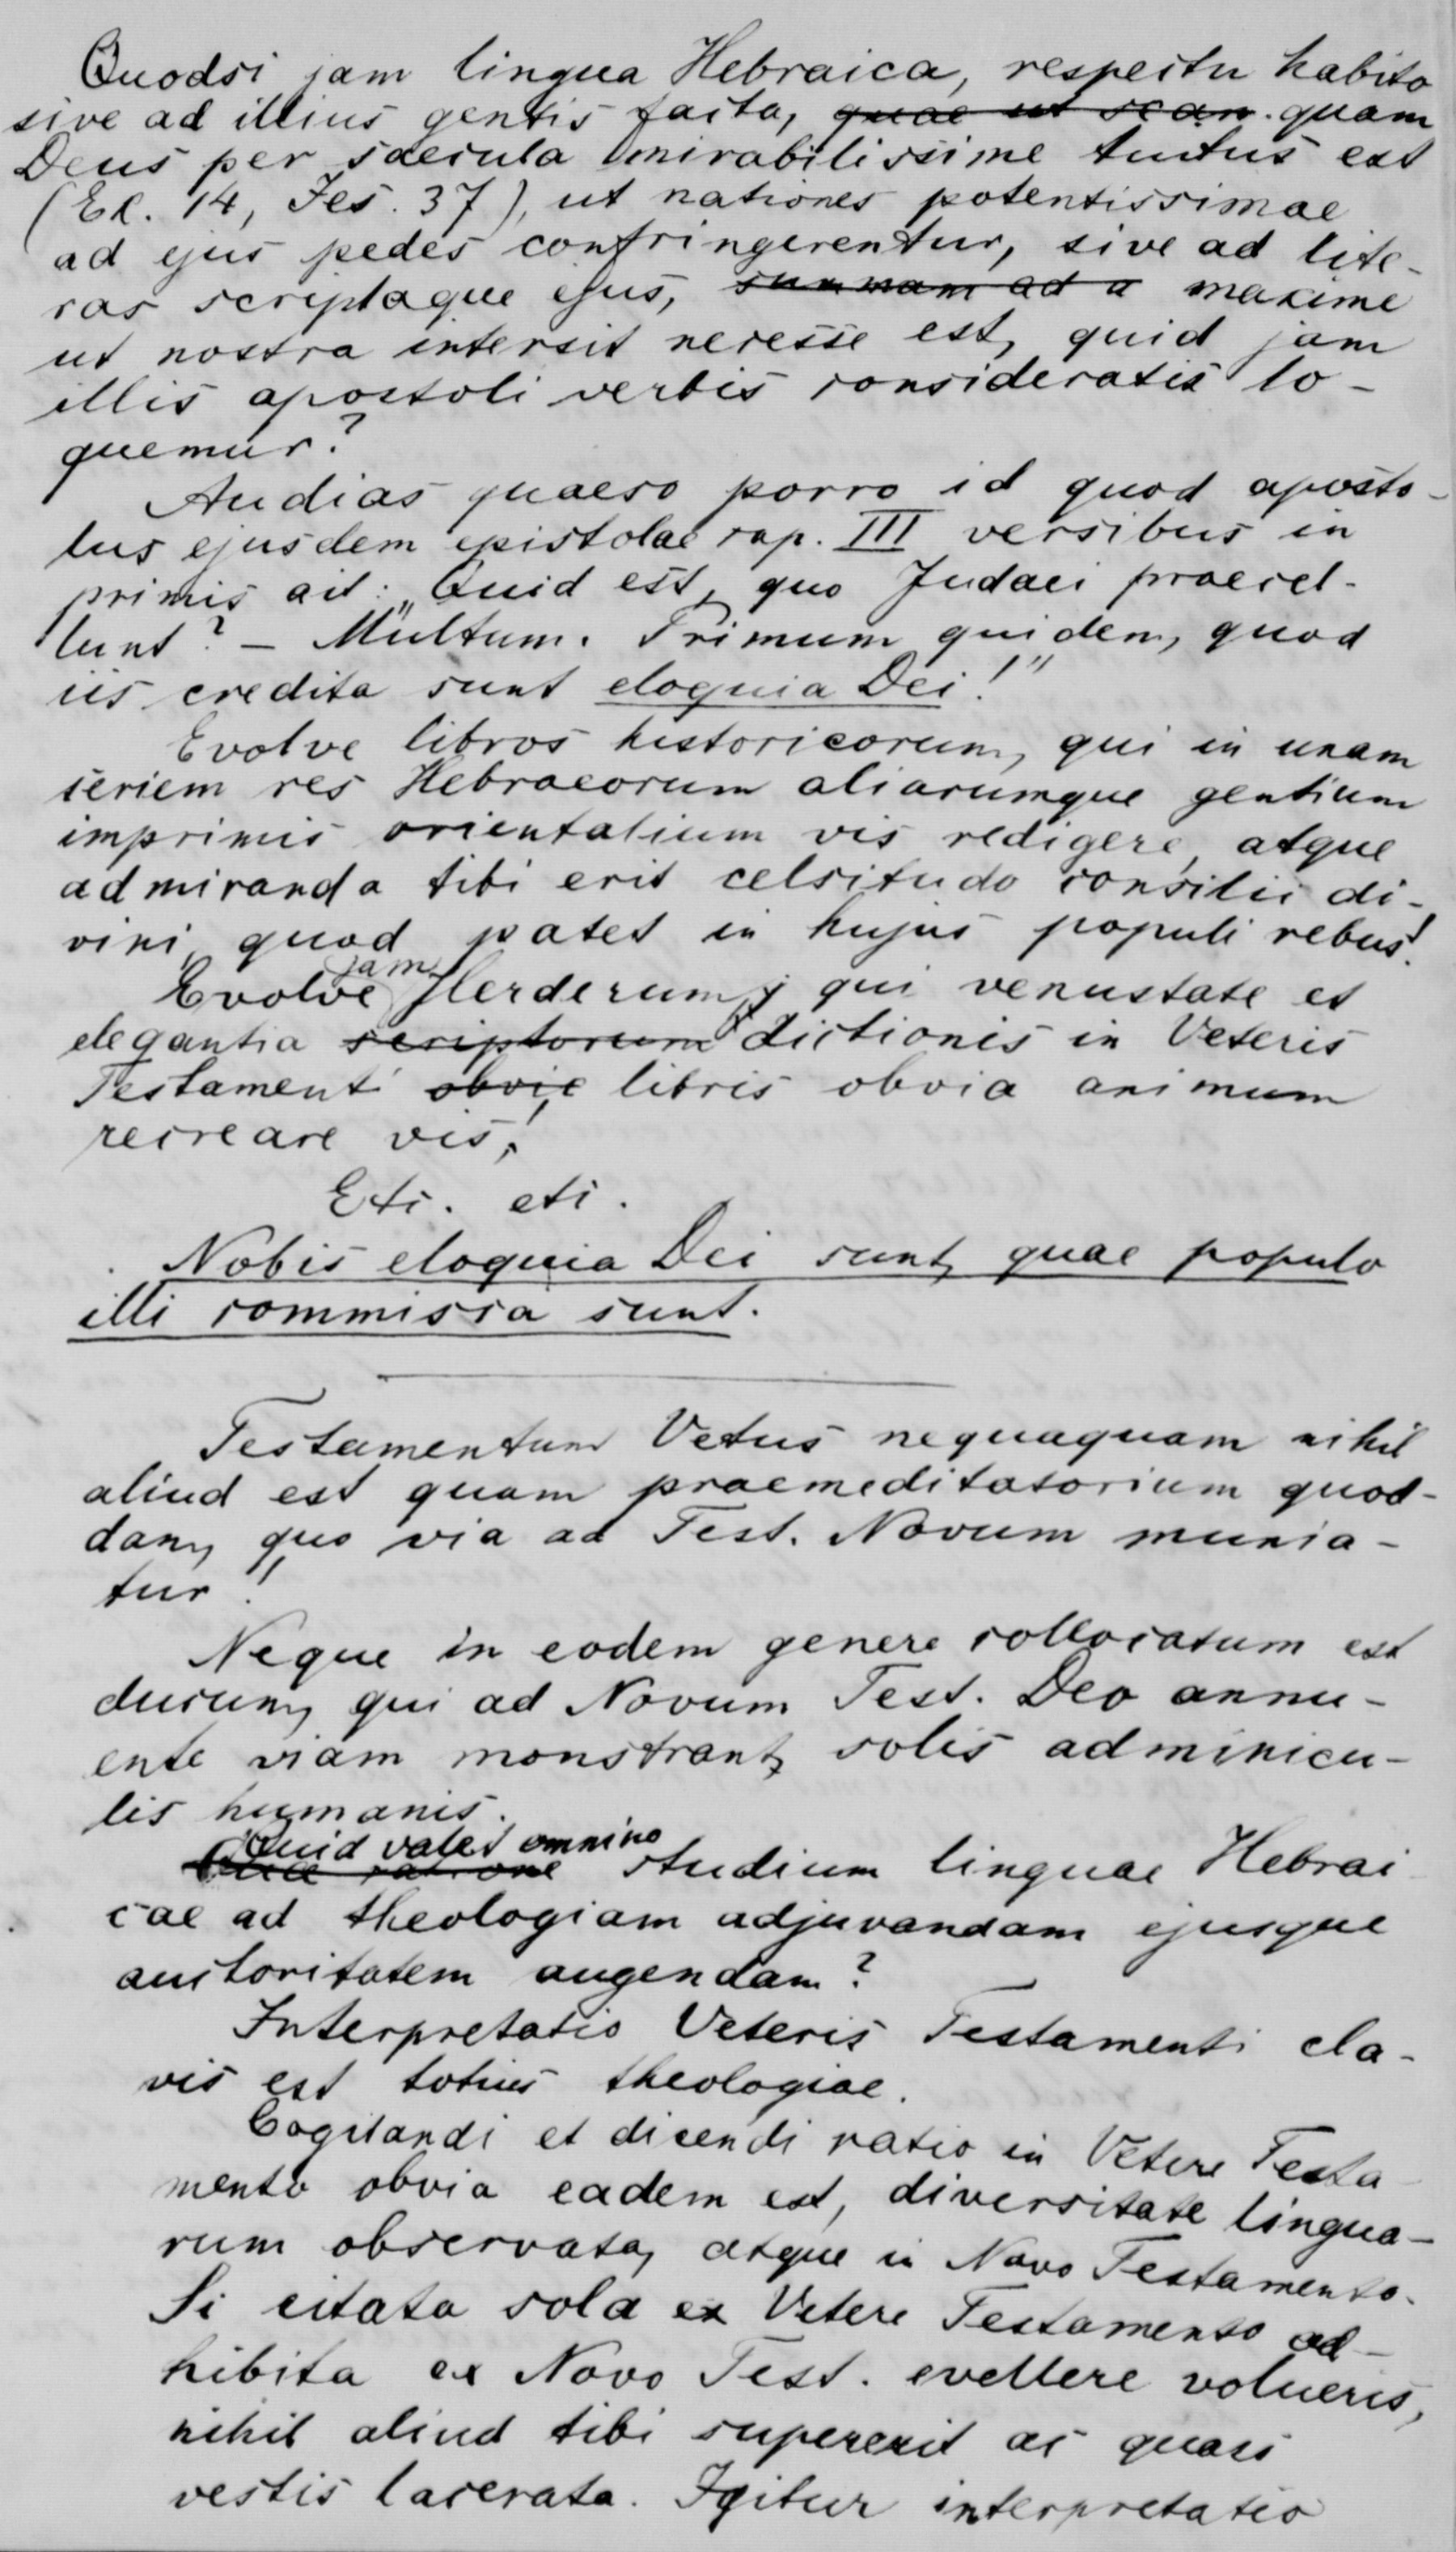 Quodsi jam lingua Hebraica, respectu habito
sive ad illius gentis facta, quae ut scan. quam
Deus per saecula mirabilissime tutus est
(Ex. 14, Jes. 37), ut nationes potentissimae
ad ejus pedes confringerentur, sive ad lite-
ras scriptaque ejus, summam ad a maxime
ut nostra intersit necesse est, quid jam
illis apostoli verbis consideratis lo-
quemur?
Audias quaeso porro id quod aposto-
lus ejusdem epistolae cap. III versibus in
primis ait: „Quid est, quo Judaei praecel-
lunt? – Multum. Primum quidem, quod
iis credita sunt eloquia Dei!"
Evolve libros historicorum, qui in unam
seriem res Hebraeorum aliarumque gentium
imprimis orientalium vis redigere, atque
admiranda tibi erit celsitudo consilii di-
vini, quod patet in hujus populi rebus!
Evolve jam Herderum, qui venustate et
elegantia scriptorum dictionis in Veteris
Testamenti obvie libris obvia animum
recreare vis!
Etc. etc.
Nobis eloquia Dei sunt, quae populo
illi commissa sunt.
Testamentum Vetus nequaquam nihil
aliud est quam praemeditatorium quod-
dam, quo via ad Test. Novum munia-
tur!
Neque in eodem genere collocatum est
ducum, qui ad Novum Test. Deo annu-
ente viam monstrant, solis adminicu-
lis humanis.
Quid valet omnino
Qua ratione studium linguae Hebrai
cae ad theologiam adjuvandam ejusque
auctoritatem augendam?
Interpretatio Veteris Testamenti cla-
vis est totius theologiae.
Cogitandi et dicendi ratio in Vetere Testa-
mento obvia eadem est, diversitate lingua-
rum observata, atque in Novo Testamento.
Si citata sola ex Vetere Testamento ad-
hibita ex Novo Test. evellere volueris,
nihil aliud tibi supererit ac quasi
vestis lacerata. Igitur interpretatio